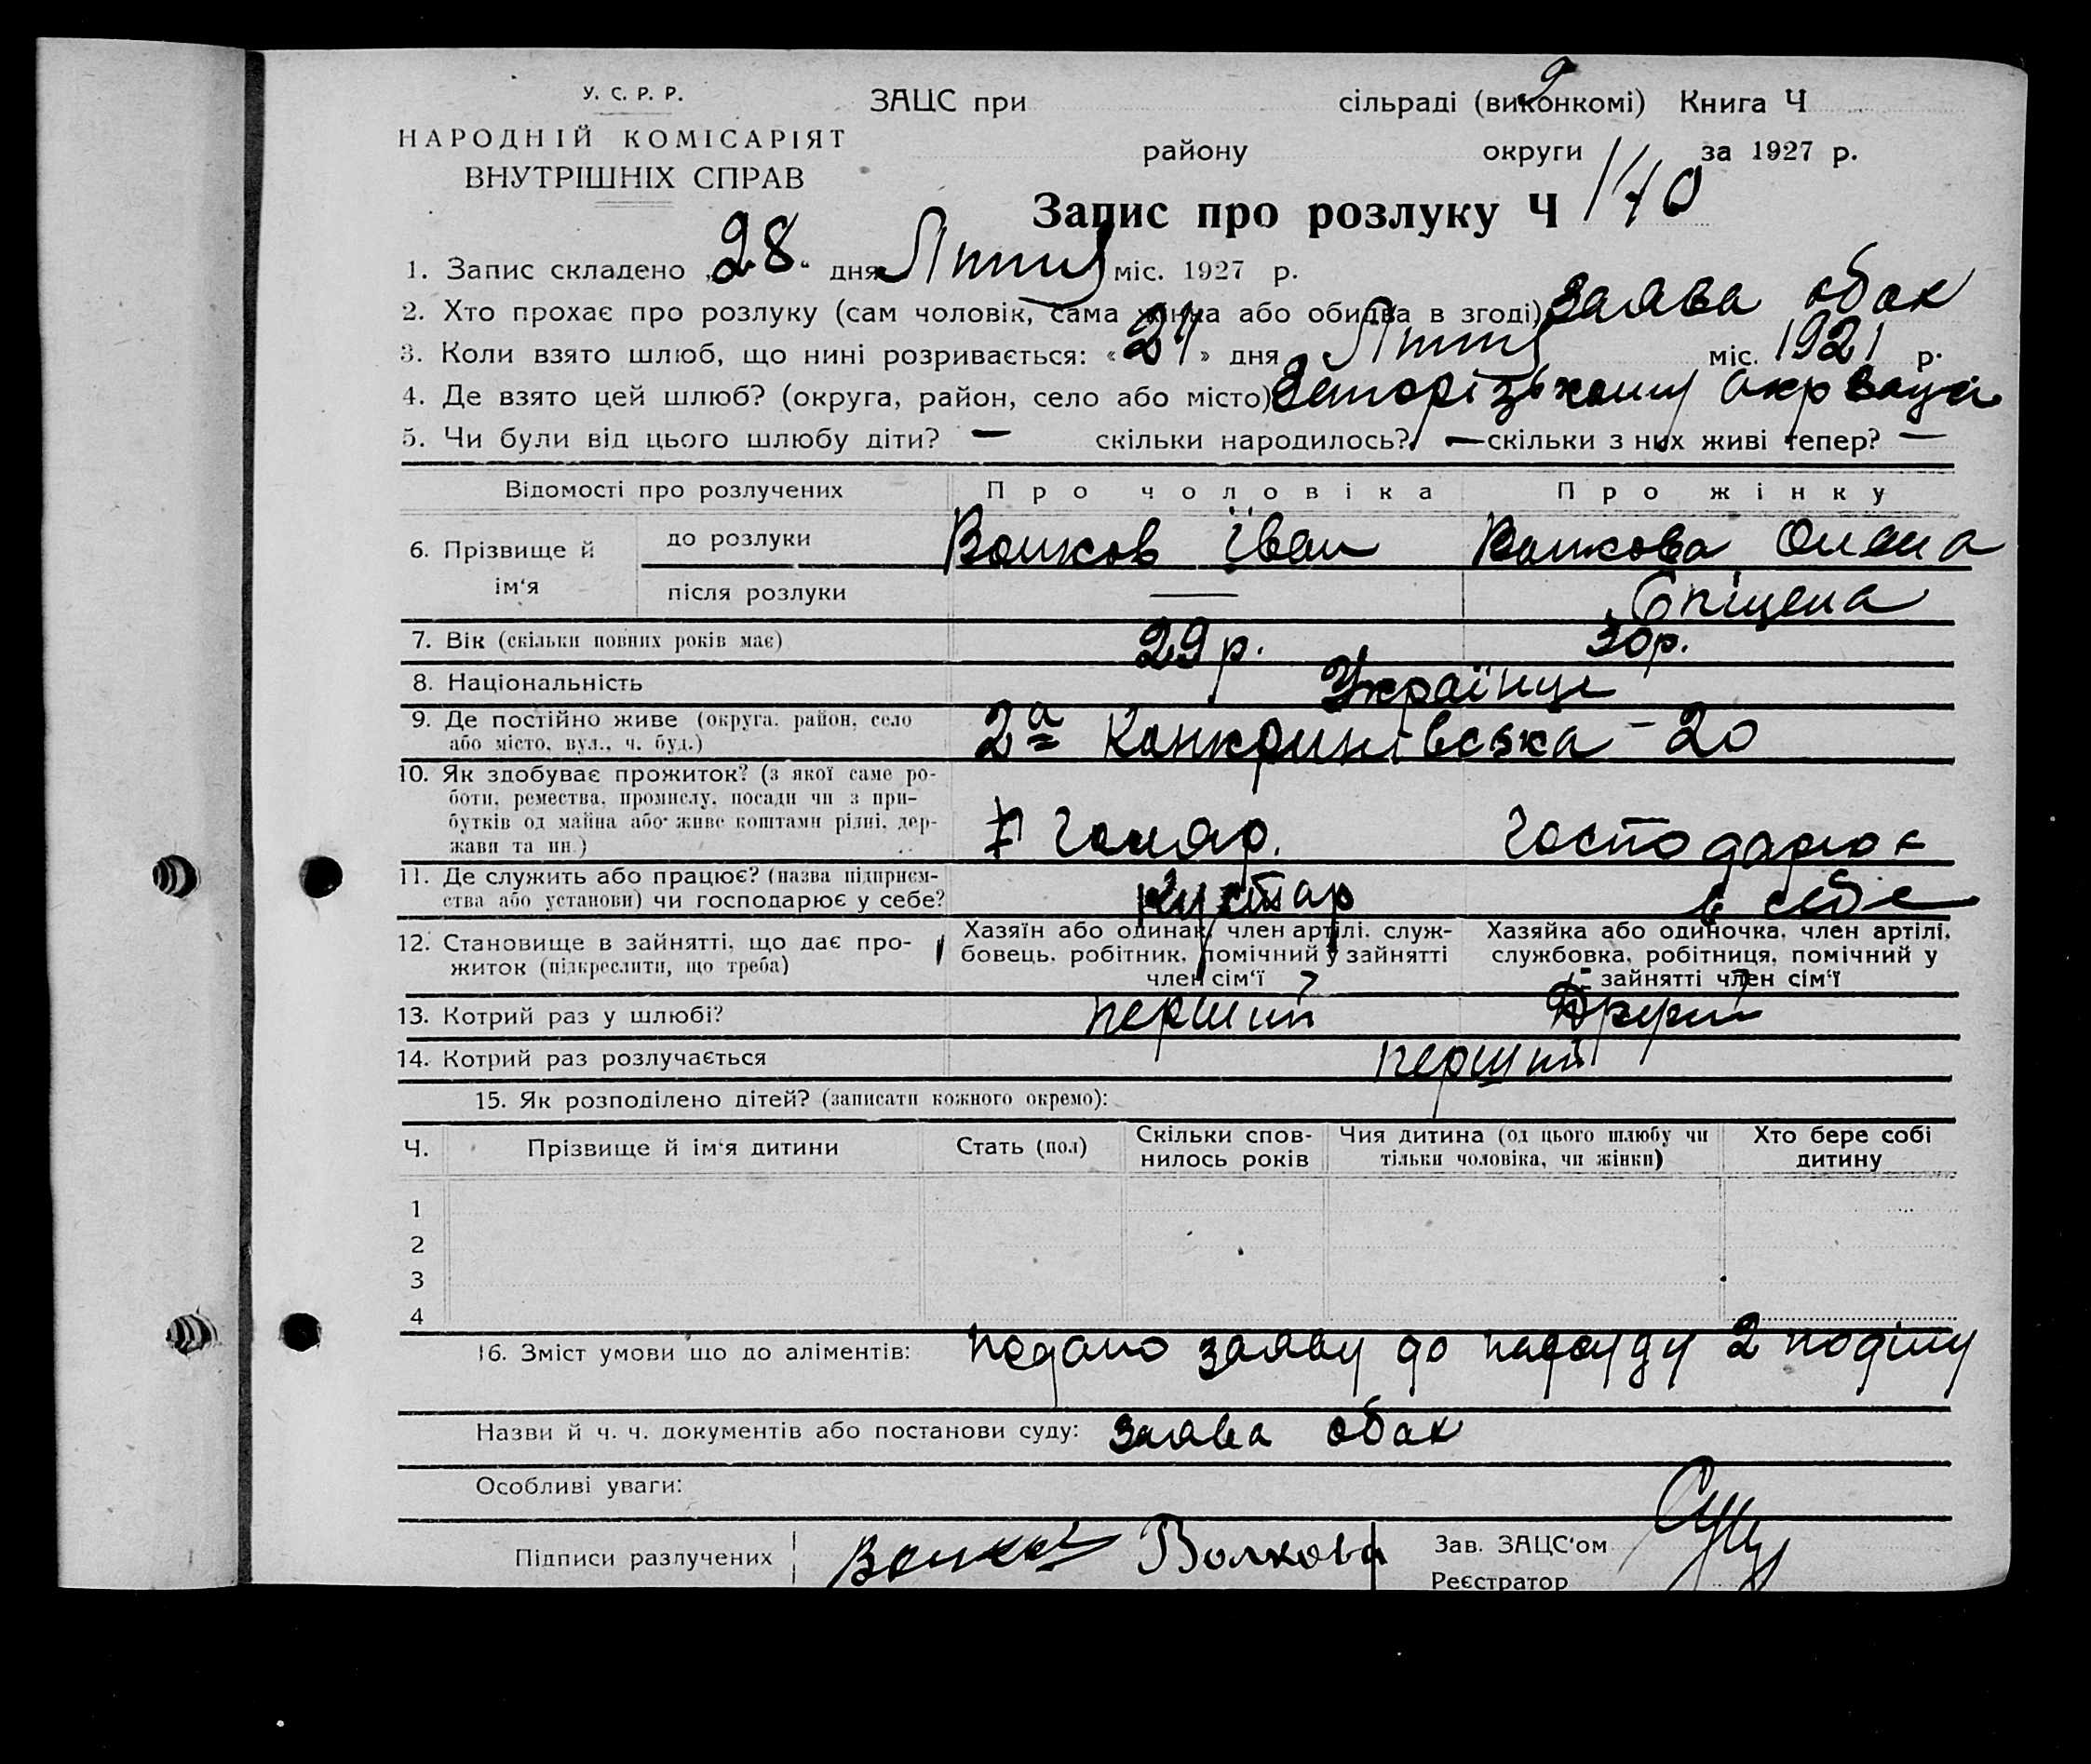 У. С. Р. Р.
НАРОДНІЙ КОМІСАРІЯТ
ВНУТРІШНІХ СПРАВ
ЗАЦС при сільраді (виконкомі) Книга Ч
району округи за 1927 р.
Запис про розлуку Ч 140
1. Запис складено „28“ дня Липня міс. 1927 р.
2. Хто прохає про розлуку (сам чоловік, сама жінка або обидва в згоді) Заява обох
3. Коли взято шлюб, що нині розривається: «24» дня Липня міс. 1921 р.
4. Де взято цей шлюб? (округа, район, село або місто) Запорізькому окр
5. Чи були від цього шлюбу діти? — скільки народилось? — скільки з них живі тепер? —
Відомості про розлучених Про чоловіка Про жінку
6. Прізвище й ім‘я до розлуки Волков Іван Волкова Олена
після розлуки — Спіцена
7. Вік (скільки повних років має) 29 р. 30 р.
8. Національність Українці
9. Де постійно живе (округа, район, село
або місто, вул., ч. буд.) 2а Канкринівська – 20
10. Як здобуває прожиток? (з якої саме ро-
боти, ремества, промислу, посади чи з при-
бутків од майна або живе коштами рідні, дер-
жави та ин.) Голяр. Господарює
11. Де служить або працює? (назва підприєм-
ства або установи) чи господарює у себе? Кустар в себе
12. Становище в зайнятті, що дає про-
житок (підкреслити, що треба)
Хазяїн або одинак, член артілі, служ-
бовець, робітник, помічний у зайнятті
член сім‘ї
Хазяйка або одиночка, член артілі,
службовка, робітниця, помічний у
зайнятті член сім‘ї
13. Котрий раз у шлюбі? перший Другий
14. Котрий раз розлучається перший
15. Як розподілено дітей? (записати кожного окремо):
Ч. Прізвище й ім‘я дитини Стать (пол) Скільки спов-
нилось років Чия дитина (од цього шлюбу чи
тільки чоловіка, чи жінки) Хто бере собі
дитину
1
2
3
4
16. Зміст умови що до аліментів: подано заяву до нарсуду 2 поділу
Назви й ч. ч. документів або постанови суду: Заява обох
Особливі уваги:
Підписи разлучених Волков Волкова Зав. ЗАЦС‘ом
Реєстратор